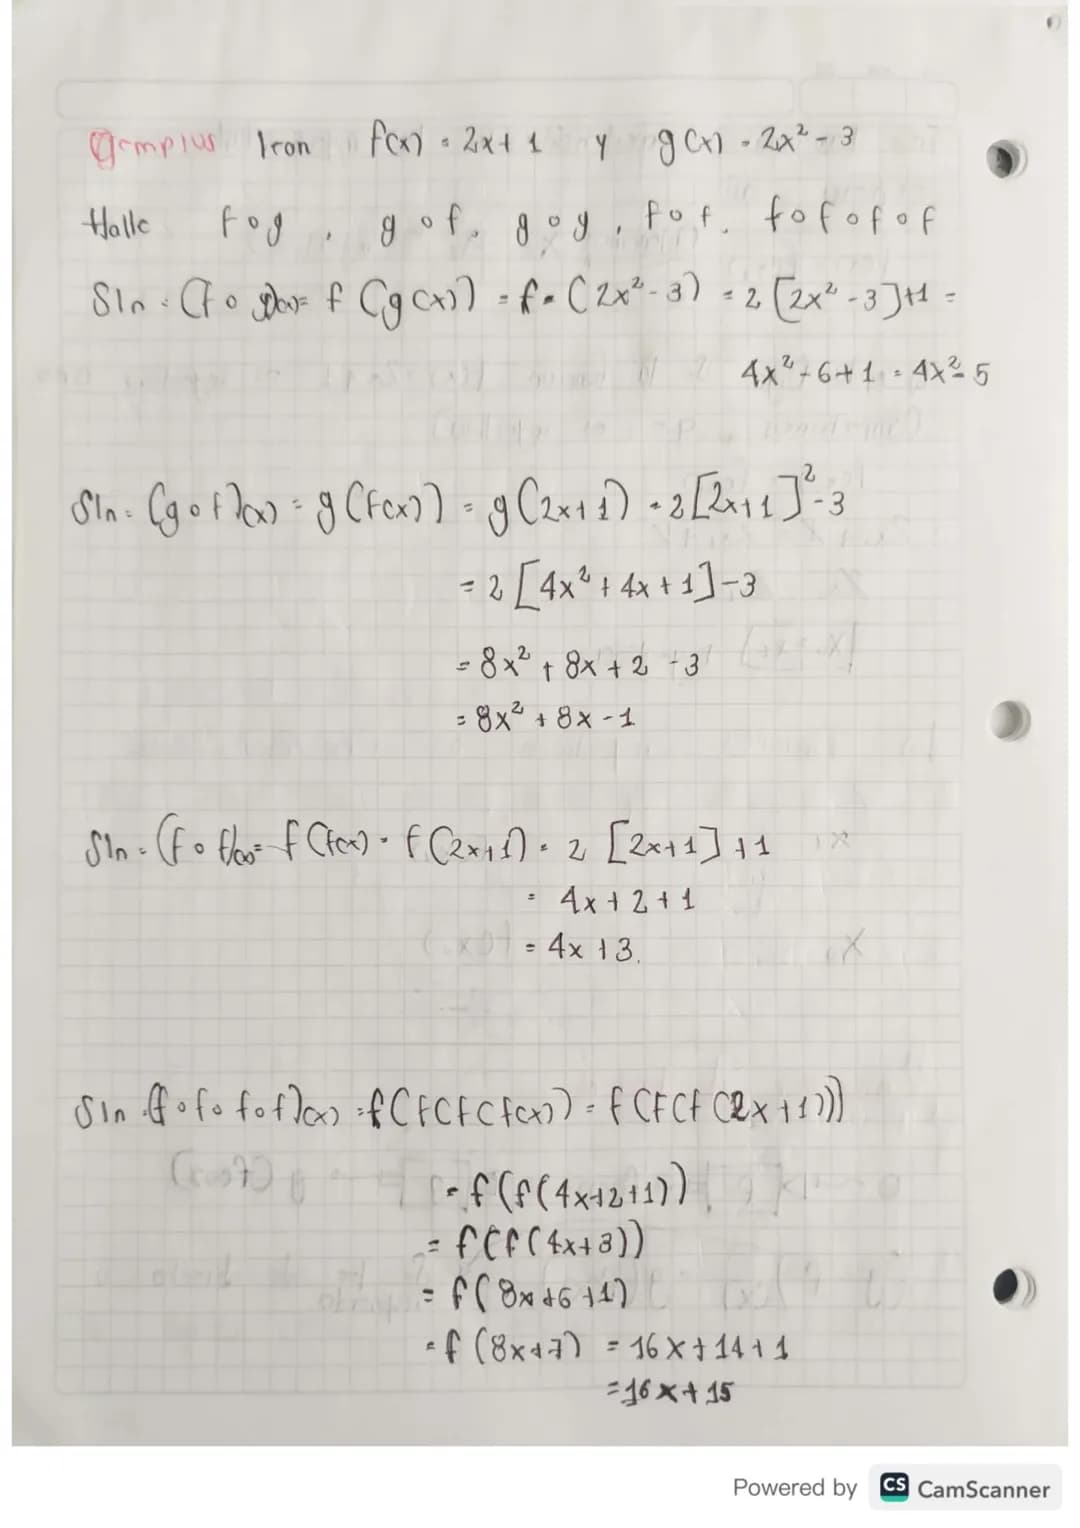 Ejemplos Iron f(x) = 2x+1 y g(x) = 2x² - 3
Halle fog, gof, gog, fof. fofofof
Sln: (fog)(x) = f(g(x)) = f = (2x²-3) = 2[2x²-3]+1 =
4x²-6+1 = 4x²-5
Sln: (gof)(x) = g(f(x)) = g(2x+1) = 2[2x+1]²-3
= 2[4x²+4x+1]-3
= 8x² + 8x + 2 - 3
= 8x² + 8x - 1
Sln: (fof)(x) = f(f(x) = f(2x+1) = 2[2x+1]+1
= 4x + 2 + 1
= 4x + 3.
Sln: (fofofof)(x) = f(f(f(f(x)) = f(f(f(2x+1)))
= f(f(4x+2+1))
= f(f(4x+3))
= f(8x+6+1)
= f(8x+7) = 16x+14+1
= 16x+15
Powered by CS CamScanner